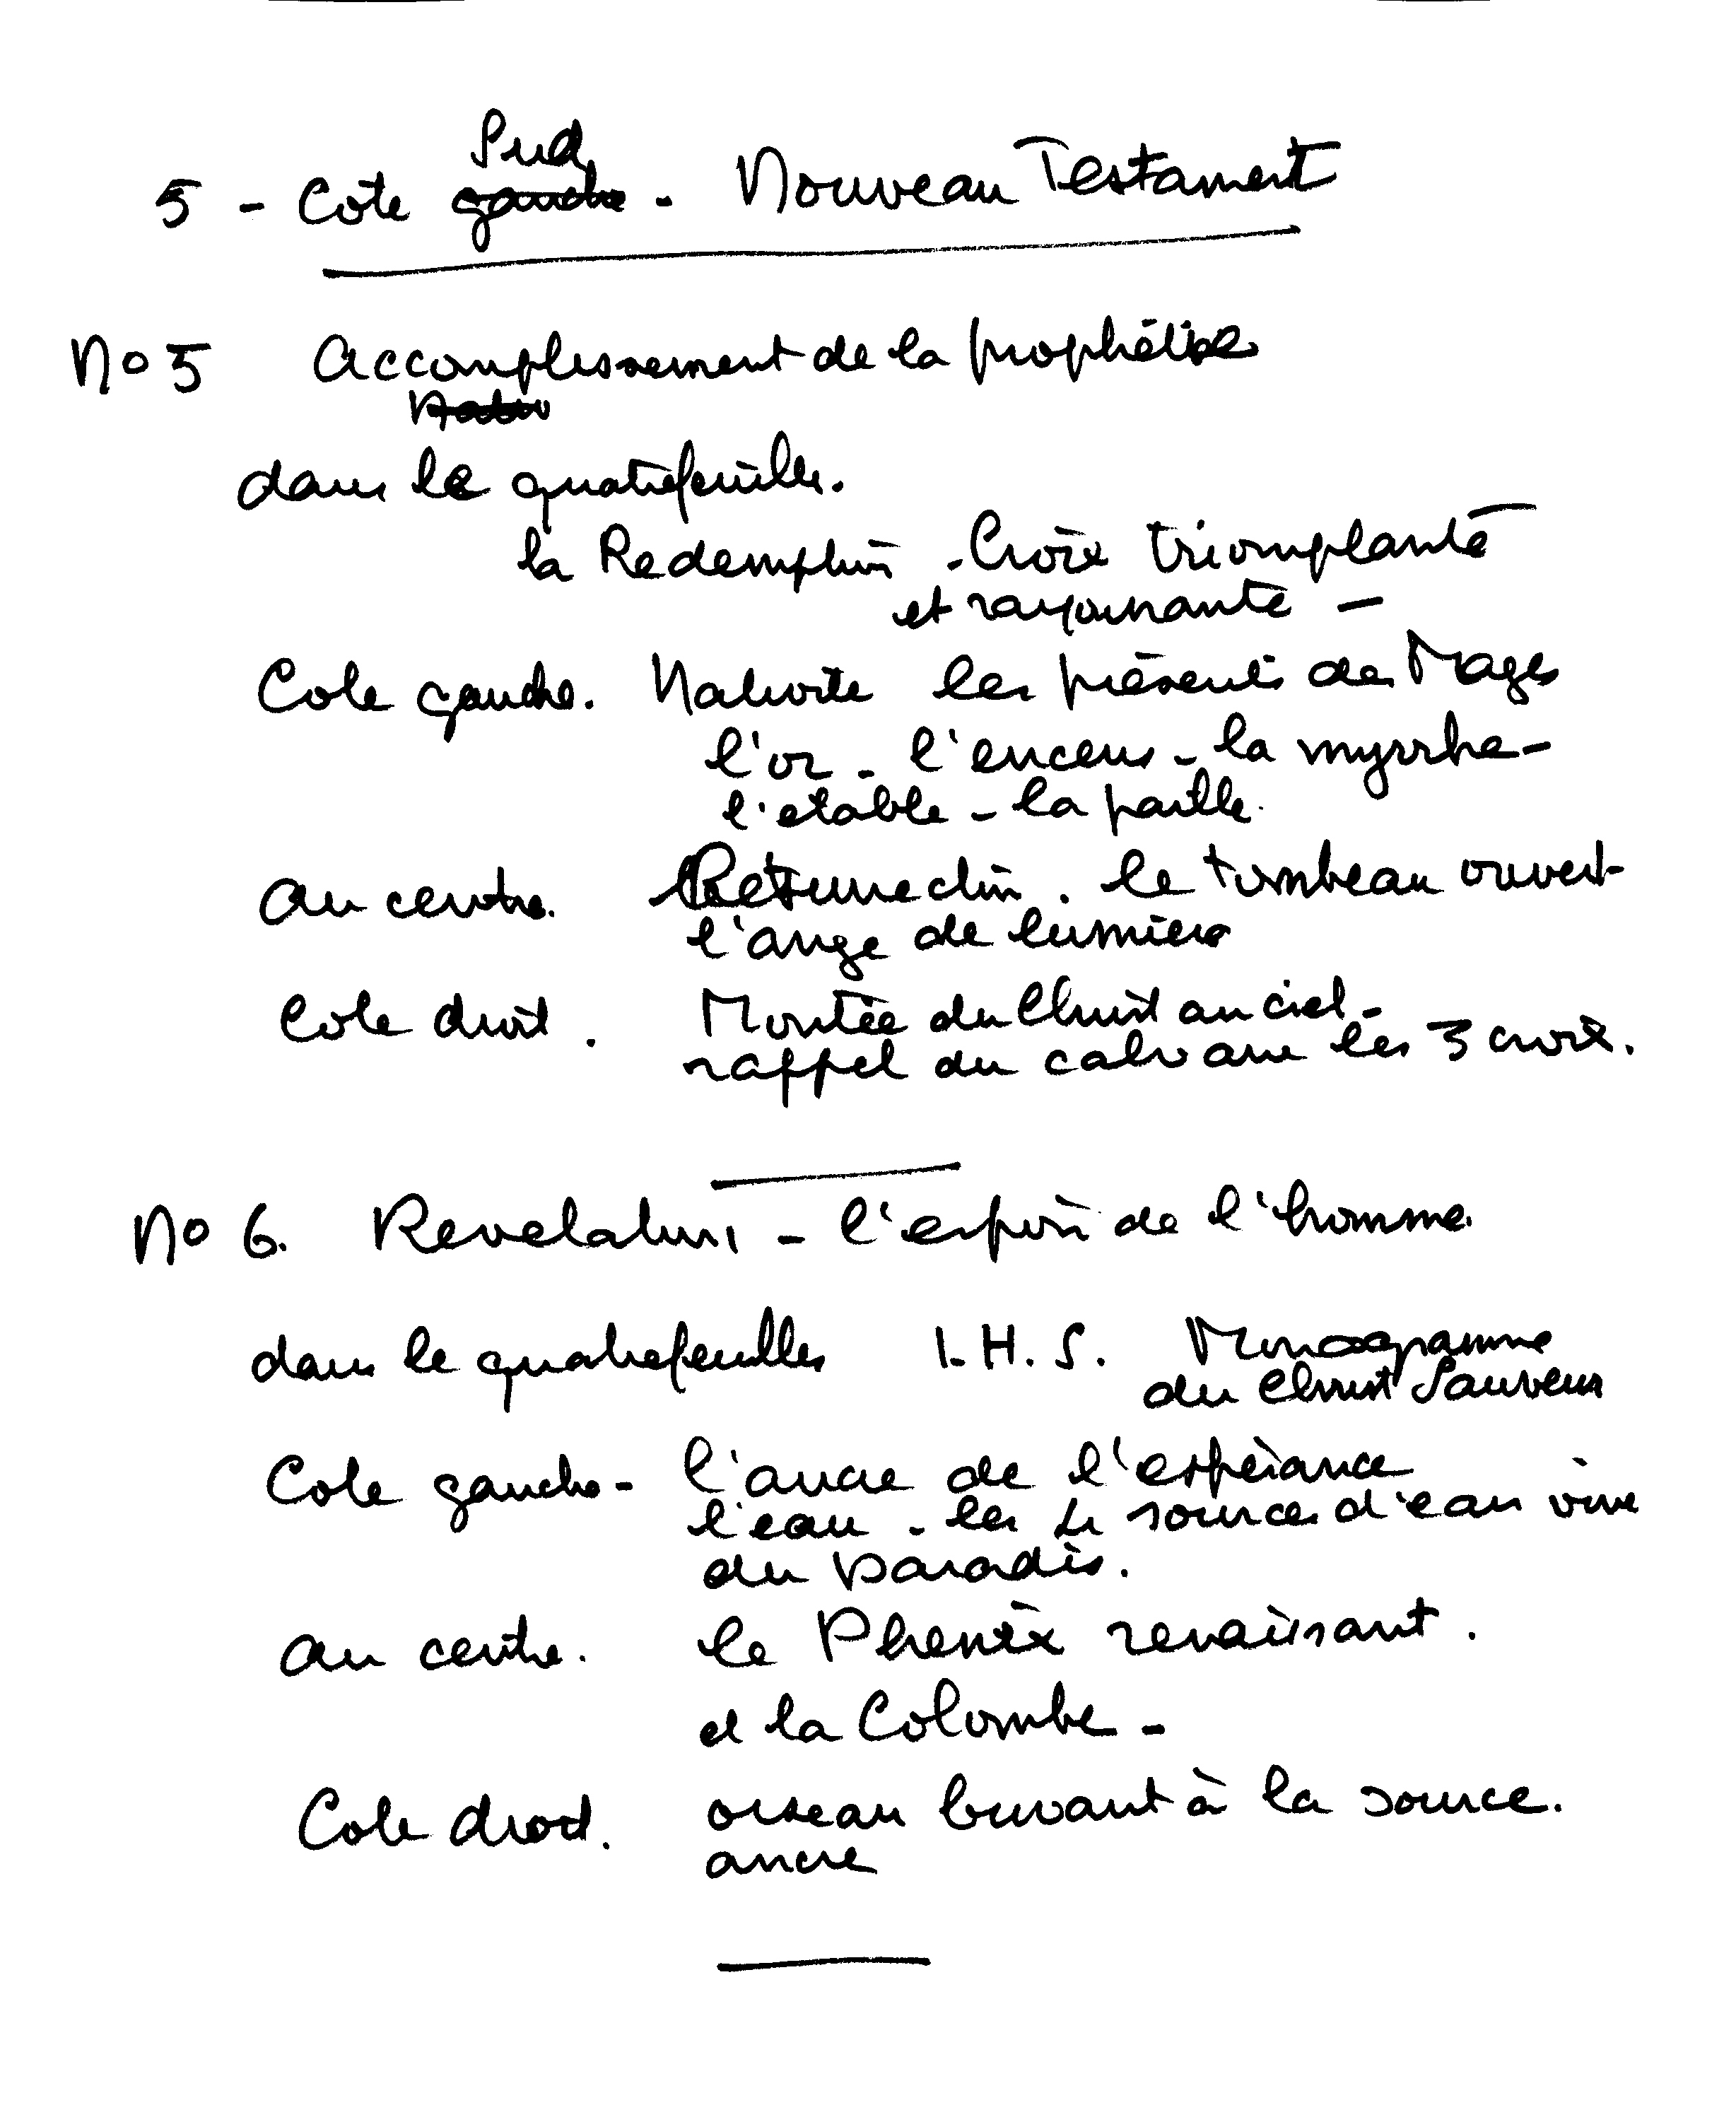 5 - Côte Sud gauche - Nouveau Testament
No 5 Accomplissement de la prophétie
dans le quatrefeuille.
la Redemption - Croix triomplante
et rayonnante -
Cote gauche. Nativite les présents des Mages
l'or - l'encens - la myrrhe -
l'etable - la paille.
au centre. Resurrection. le tombeau ouvert
l'ange de lumiere
Cote droit. Montée du Christ au ciel -
rappel du calvaire les 3 croix.
No 6. Revelation - l'espoir de l'homme
dans le quatrefeuilles I.H.S. Monogramme
du Christ Sauveur
Cote gauche - l'ancre de l'espérance
l'eau - les 4 sources d'eau vive
du Paradis.
au centre. le Phenix renaissant.
et la Colombe -
Cote droit. oiseau buvant à la source.
ancre